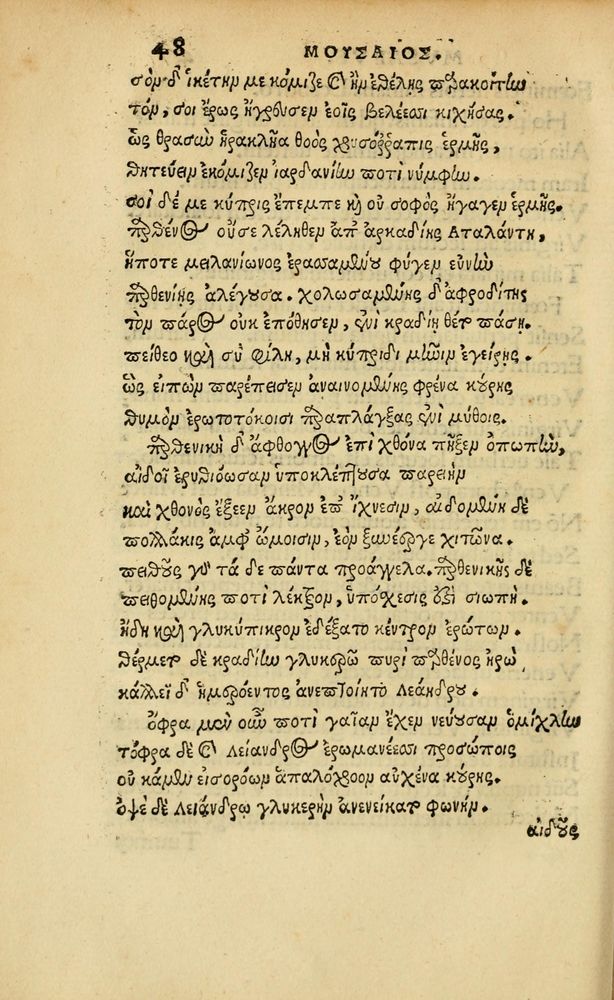 48 ΜΟΥΣΑΙΟΣ.
σὸν δ' ἱκέτην με κόμιζε καὶ ἢν ἐθέλης παρακοίτην
τόν, σοι ἔρως ἤγρευσεν ἑοῖς βελέεσσι κιχήσας.
ὡς θρασὺν ἡρακλῆα θοὸς χρυσόρραπις ἑρμῆς,
θητεύειν ἐκόμιζεν ἰαρδανίην ποτὶ νύμφην.
σοὶ δέ με κύπρις ἔπεμπε καὶ οὐ σοφὸς ἤγαγεν ἑρμῆς.
παρθένος οὔ σε λέληθεν ἀπ' ἀρκαδίης Αταλάντη,
ἥ ποτε μειλανίωνος ἐρασσαμένου φύγεν εὐνὴν
παρθενίης ἀλέγουσα. χολωσαμένης δ' ἀφροδίτης
τὸν πάρος οὐκ ἐπόθησεν, ἐνὶ κραδίη θέτο πάση.
πείθεο καὶ σὺ φίλη, μὴ κύπριδι μῆνιν ἐγείρης.
ὣς εἰπὼν παρέπεισεν ἀναινομένης φρένα κούρης
θυμὸν ἐρωτοτόκοισι παραπλάγξας ἐνὶ μύθοις.
παρθενικὴ δ' ἄφθογγος ἐπὶ χθόνα πῆξεν ὀπωπὴν,
αἰδοῖ ἐρυθιόωσαν ὑποκλέπτουσα παρειὴν
καὶ χθονὸς ἔξεεν ἄκρον ἐπ' ἴχνεσιν, αἰδομένη δὲ
πολλάκις ἀμφ' ὤμοισιν, ἑὸν ξυνέεργε χιτῶνα.
πειθοῦς γὰρ τάδε πάντα προάγγελα. παρθενικῆς δὲ
πειθομένης ποτὶ λέκτρον, ὑπόσχεσις ἐστὶ σιωπή.
ἤδη καὶ γλυκύπικρον ἐδέξατο κέντρον ἐρώτων.
θέρμετο δὲ κραδίην γλυκερῷ πυρὶ παρθένος ἡρὼ
κάλλεϊ δ' ἱμερόεντος ἀνεπτοίητο Λεάνδρου.
ὄφρα μὲν οὖν ποτὶ γαῖαν ἔχεν νεύουσαν ὀμίχλην
τόφρα δὲ καὶ Λείανδρος ἐρωμανέεσσι προσώποις
οὐ κάμεν εἰσορόων ἁπαλόχροον αὐχένα κούρης.
ὀψὲ δὲ Λειάνδρῳ γλυκερὴν ἀνενείκατο φωνήν.
αἰδοῦς